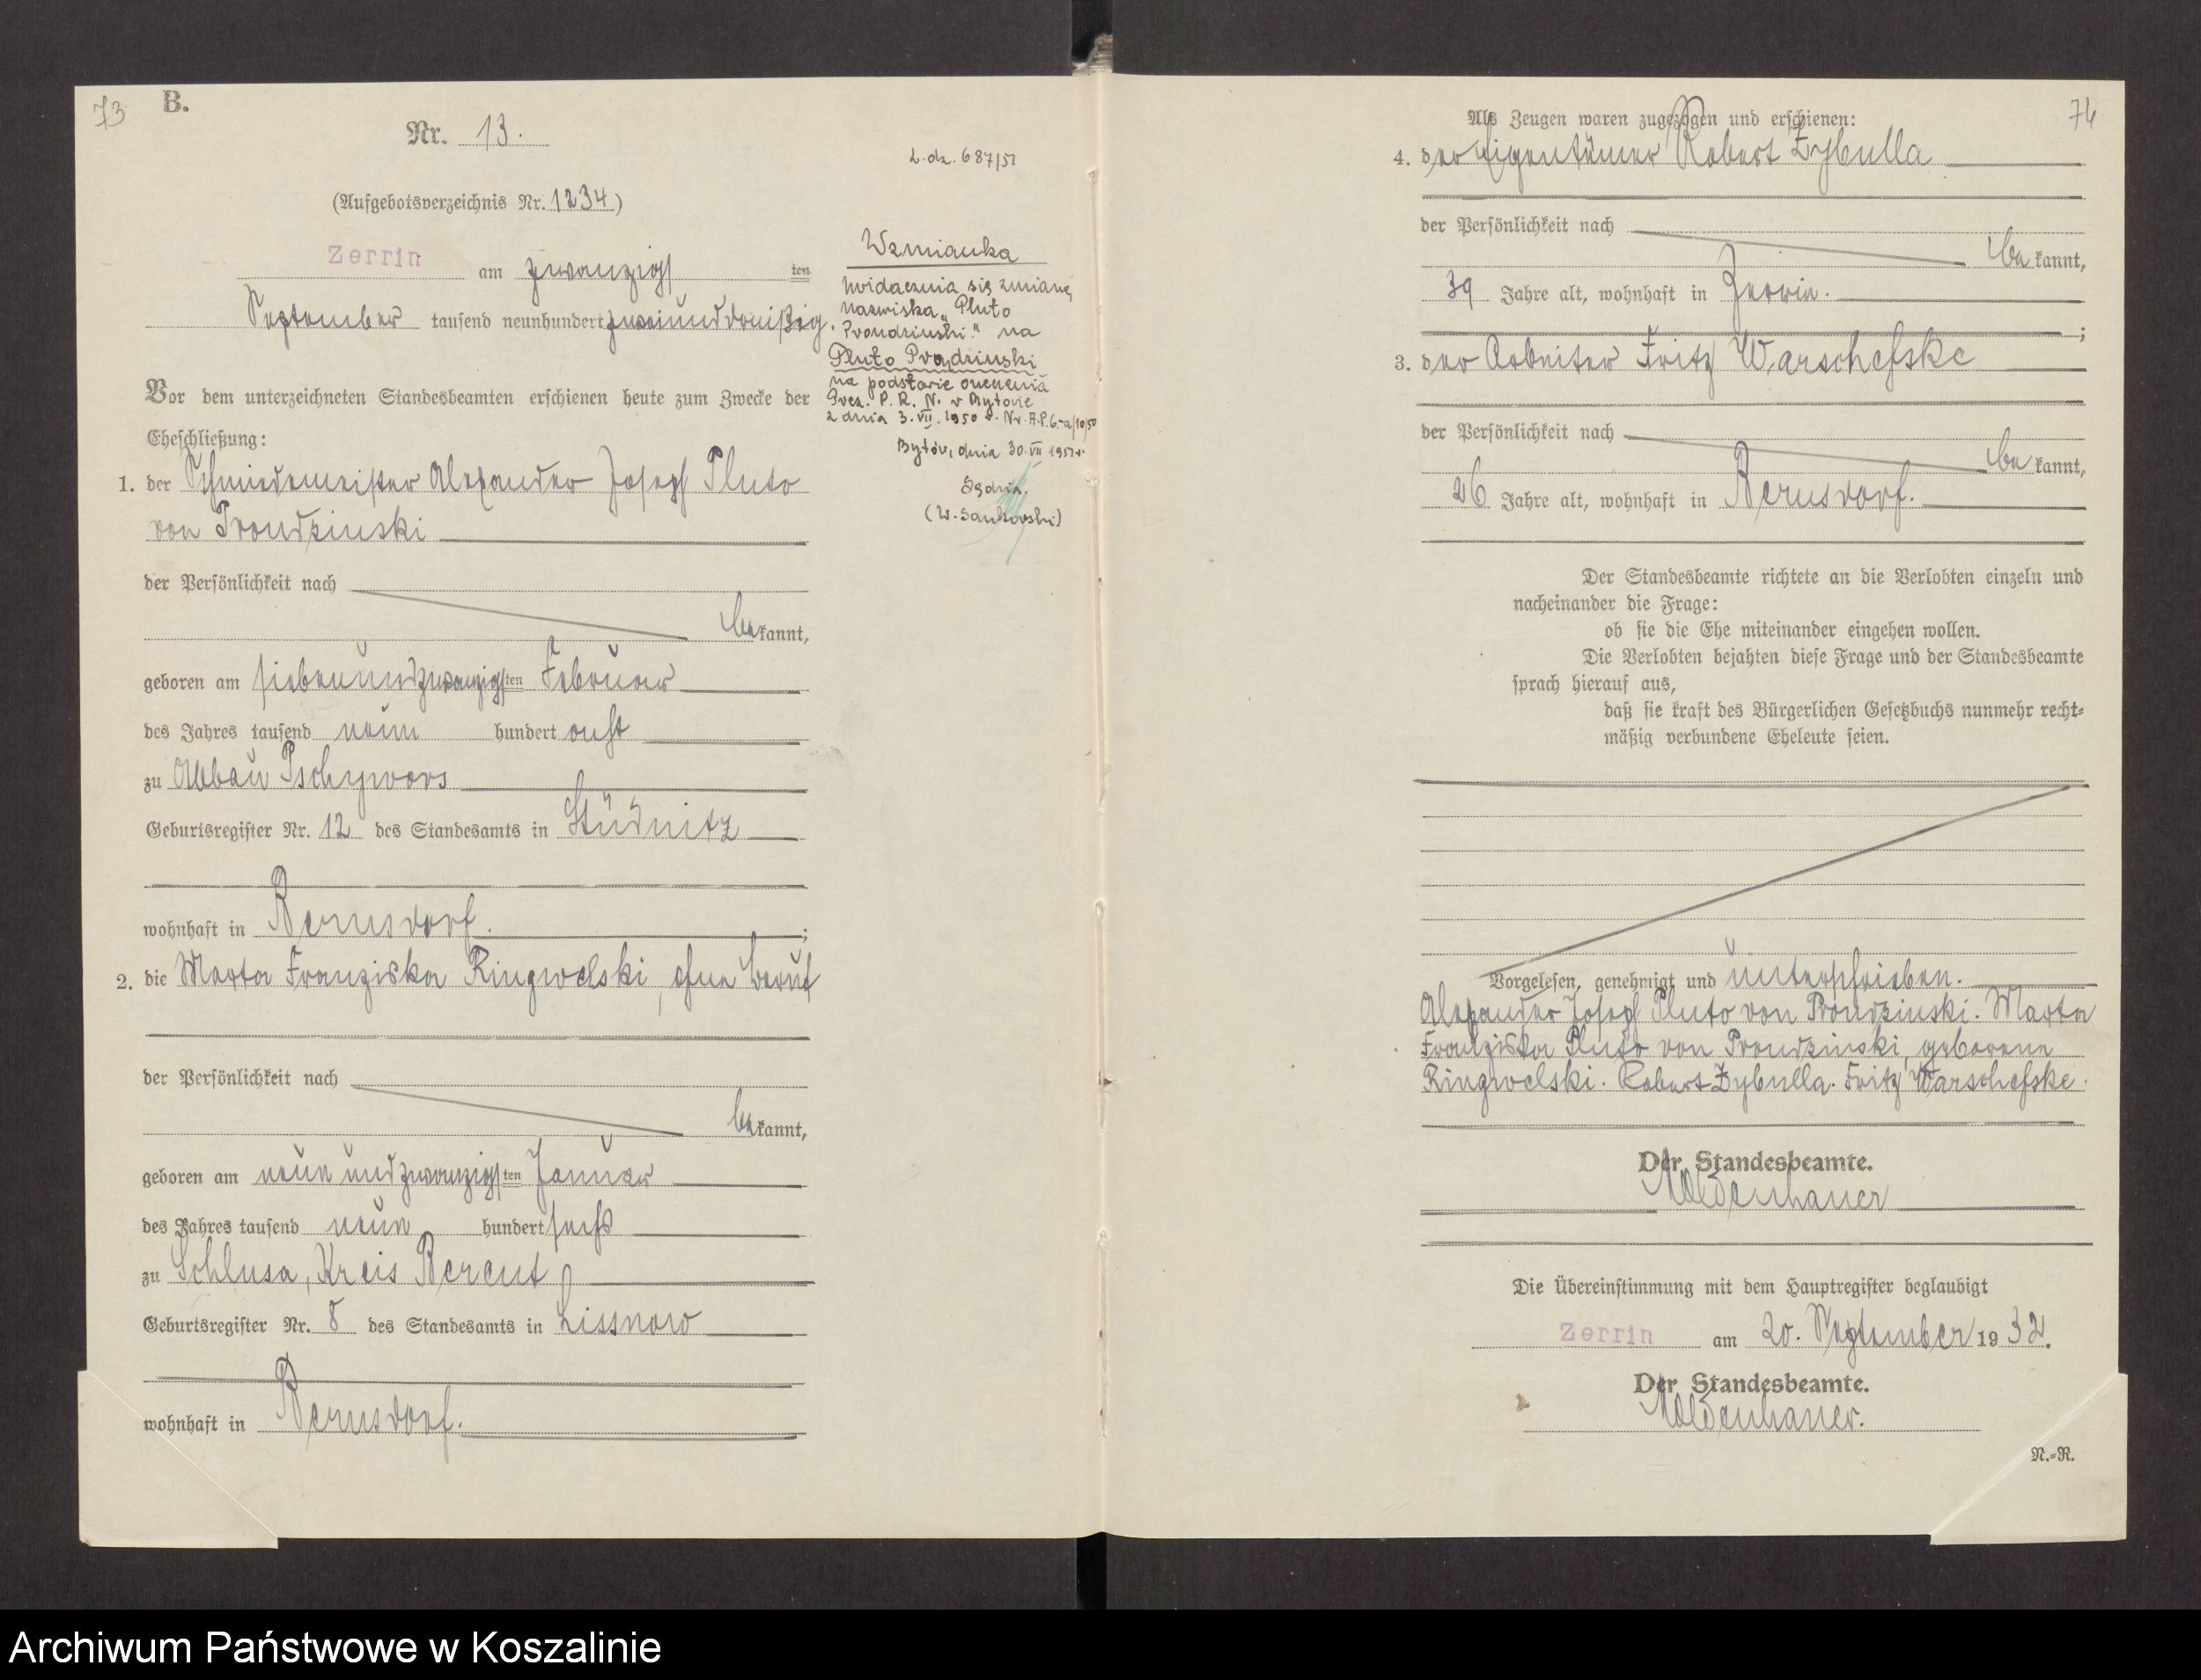 73
B.
Nr. 13.
L.dz. 687/51
(Aufgebotsverzeichnis Nr. 1234)
Zerrin am zwanzigsten
September tausend neunhundert zweiunddreißig.
Wzmianka
Uwidacznia się zmianę
nazwiska „Pluto
Prondzinski" na
Pluto Prądzinski
na podstawie orzeczenia
Prez. P. R. N. w Bytowie
z dnia 3. VII. 1950 r. Nr. A.P.6.-a/10/50
Bytów, dnia 30. VII 1951 r.
(W. Sankowski)
Vor dem unterzeichneten Standesbeamten erschienen heute zum Zwecke der
Eheschließung:
1. der Schmiedemeister Alexander Josef Pluto
von Prondzinski
der Persönlichkeit nach
bekannt,
geboren am siebenundzwanzigsten Februar
des Jahres tausend neun hundert acht
zu Abbau Pschywors
Geburtsregister Nr. 12 des Standesamts in Stüdnitz
wohnhaft in Bernsdorf.;
2. die Marta Franziska Ringwelski, ohne Beruf
der Persönlichkeit nach
bekannt,
geboren am neun und zwanzigsten Januar
des Jahres tausend neun hundert sechs
zu Schlusa, Kreis Berent
Geburtsregister Nr. 8 des Standesamts in Lissnow
wohnhaft in Bernsdorf.
74
Als Zeugen waren zugezogen und erschienen:
4. der Eigentümer Robert Zybulla
der Persönlichkeit nach
bekannt,
39 Jahre alt, wohnhaft in Zerrin.
;
3. der Arbeiter Fritz Warschefske
der Persönlichkeit nach
bekannt,
26 Jahre alt, wohnhaft in Bernsdorf.
Der Standesbeamte richtete an die Verlobten einzeln und
nacheinander die Frage:
ob sie die Ehe miteinander eingehen wollen.
Die Verlobten bejahten diese Frage und der Standesbeamte
sprach hierauf aus,
daß sie kraft des Bürgerlichen Gesetzbuchs nunmehr recht-
mäßig verbundene Eheleute seien.
Vorgelesen, genehmigt und unterschrieben.
Alexander Josef Pluto von Prondzinski. Marta
Franziska Pluto von Prondzinski, geborene
Ringwelski. Robert Zybulla. Fritz Warschefske.
Der Standesbeamte.
Moldenhauer
Die Übereinstimmung mit dem Hauptregister beglaubigt
Zerrin am 20. September 1932.
Der Standesbeamte.
Moldenhauer.
N.-R.
Archiwum Państwowe w Koszalinie